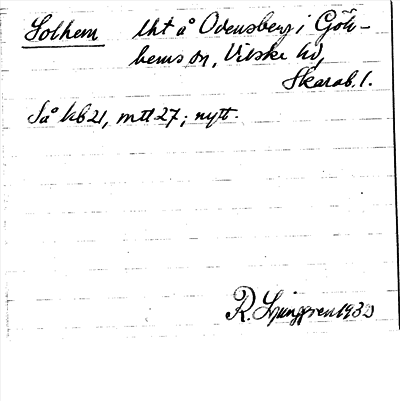 Solhem lht å Ovensberg i Göke-
hems sn, Vilske hd,
Skarab. l.
Så kb 21, mtl 27; nytt.
R. Ljunggren 1930